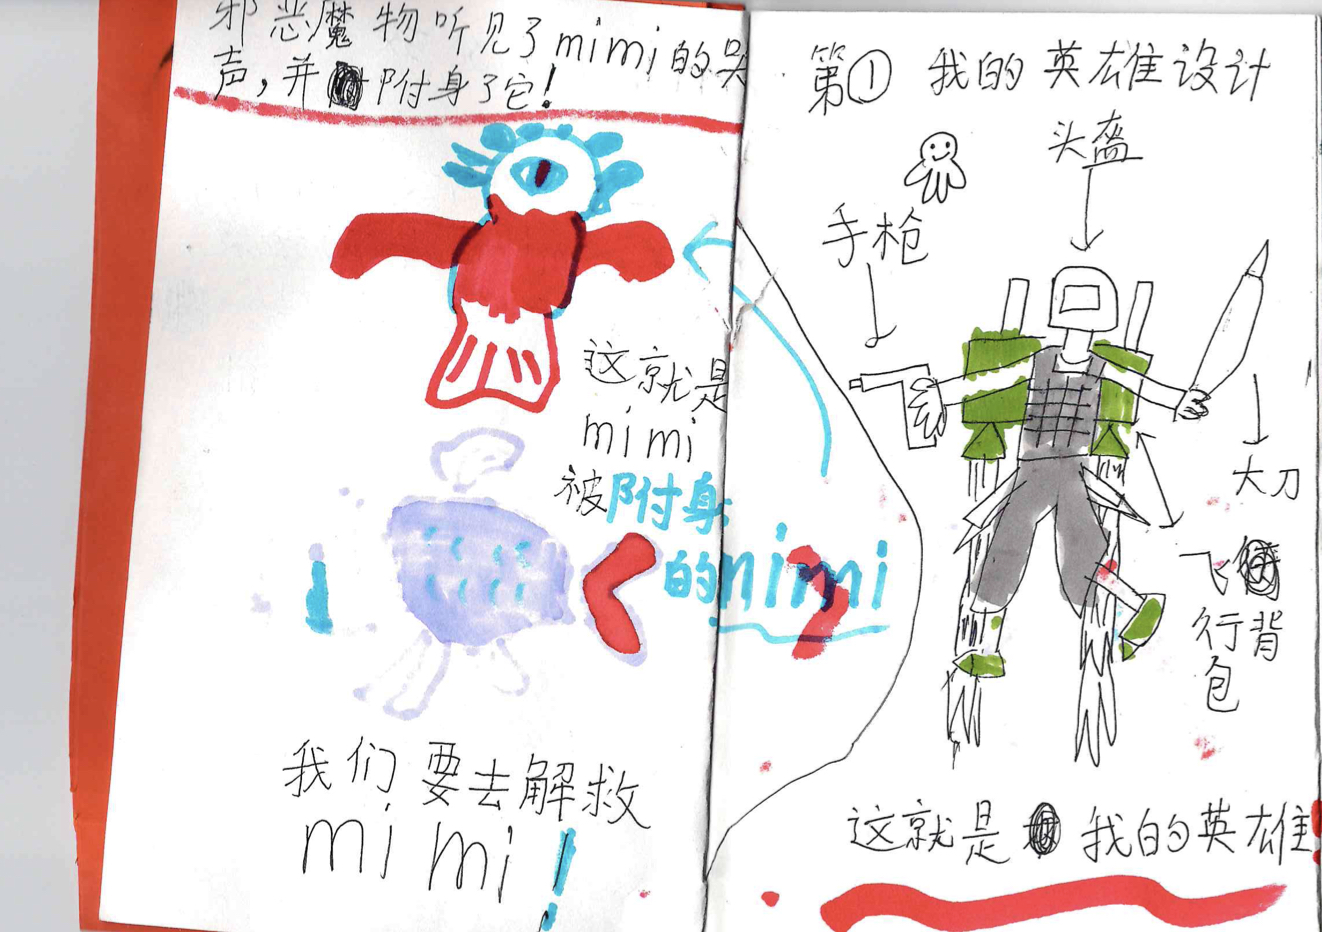 邪恶魔物听见了mimi的哭
声，并附身了它！
这就是
mimi
被附身
的mimi
我们要去解救
mimi！
第① 我的英雄设计
头盔
手枪
大刀
飞
行背
包
这就是我的英雄